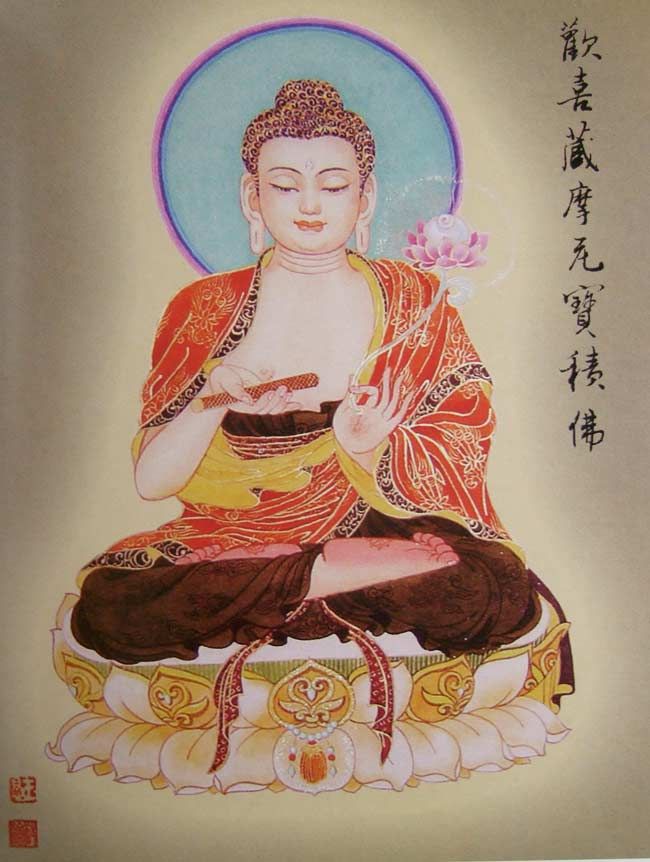 歡喜藏摩尼寶積佛